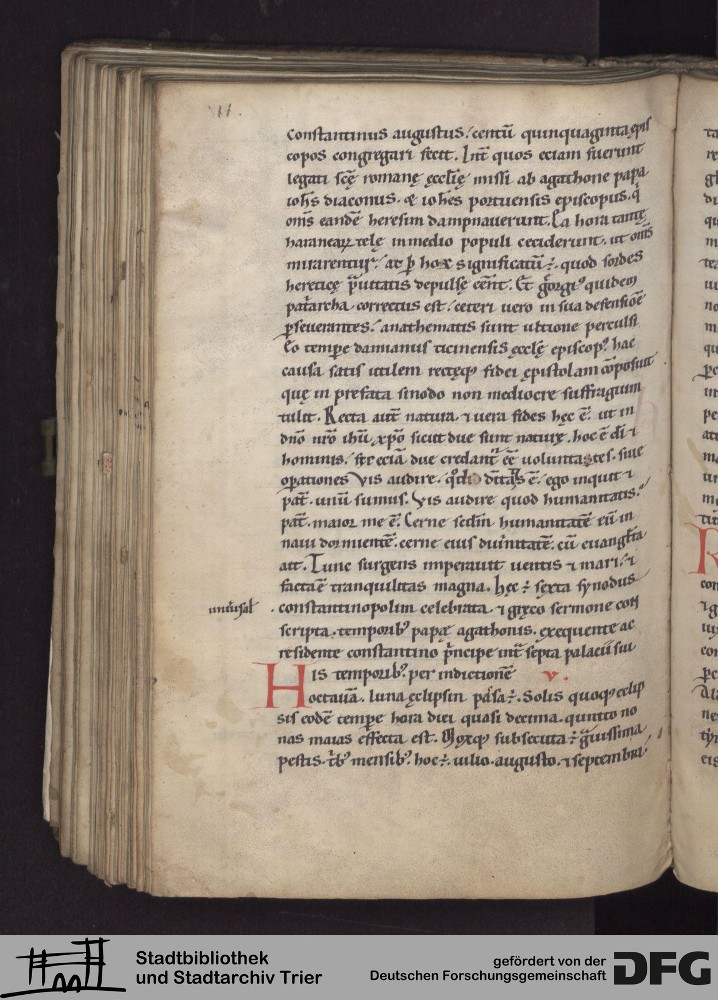 11.
constantinus augustus. centū quinquaginta epis
copos congregari fecit. Int̄ quos eciam fuerunt
legati scę romanę ęcclię missi ab agathone papa
ioh̄s diaconus. & ioh̄es portuensis episcopus. q̇
om̄s eandē heresim dampnauerunt. Ea hora tantę
haraneaꝝ telę in medio populi ceciderunt. ut om̄s
mirarentur. ac ꝑ hoc significatū ÷. quod sordes
hereticę prauitatis depulsę eēnt. Et gͦrgiꝰ quidem
pat̄archa correctus est. ceteri uero in sua defensiōe
ꝑseuerantes. anathematis sunt ultione perculsi.
Eo temꝑe damianus ticinensis ęcclę episcopꝰ hac
causa satis utilem rectęqꝫ fidei ępistolam cōposuit
quę in prefata sinodo non mediocre suffragium
tulit. Recta aūt natura. ⁊ uera fides hęc ē. ut in
dn̄o nr̄o ihū xp̄o sicut due sunt naturę. hoc ē dī ⁊
hominis. sic eciā due credant᷑ eē uoluntates. siue
oꝑationes Vis audire. ē. ego inquit ⁊
pat̄. unū sumus. Vis audire quod humanitatis.
pat̄. maior me ē. Cerne scdm humanitatē eū in
naui dormientē. cerne eius diuinitatē. cū euangl̄ia
ait. Tunc surgens imperauit uentis ⁊ mari. ⁊
facta ē tranquilitas magna. hęc ÷ sexta synodus
uniūsal̄
constantinopolim celebrata. ⁊ gręco sermone con
scripta. temporibꝰ papę agathonis. ęxequente ac
residente constantino p̄ncipe int̄ septa palacii sui
His temporibꝰ. per indictionē v.
octauā. luna ęclipsin pāsa ÷. Solis quoqꝫ eclip
sis eodē temꝑe hora diei quasi decima. quinto no
nas maias effecta est. Moxqꝫ subsecuta ÷ grauissima
pestis. t̄bꝰ mensibꝰ. hoc ÷. iulio. augusto. ⁊ septembri.
Stadtbibliothek
und Stadtarchiv Trier
gefördert von der
Deutschen Forschungsgemeinschaft
DFG